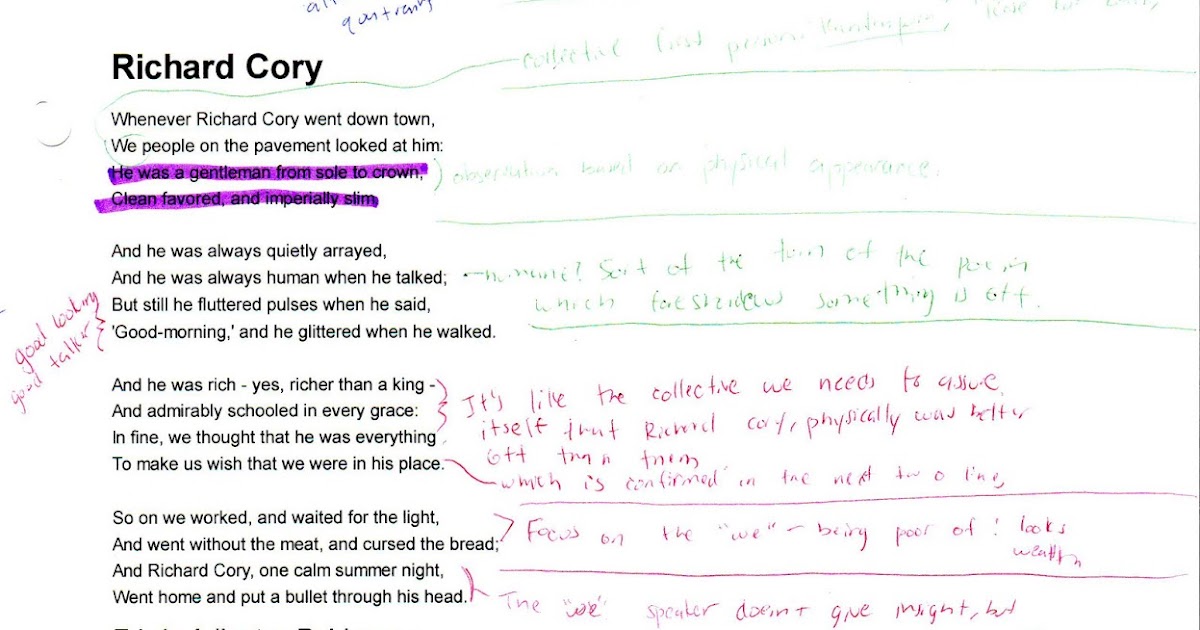 quatrains
collective first person.
Richard Cory
Whenever Richard Cory went down town,
We people on the pavement looked at him:
He was a gentleman from sole to crown,
Clean favored, and imperially slim.
observation based on physical appearance.
And he was always quietly arrayed,
And he was always human when he talked;
But still he fluttered pulses when he said,
'Good-morning,' and he glittered when he walked.
Sort of the turn of the poem
which foreshadows something is off.
good looking
good talker
And he was rich - yes, richer than a king -
And admirably schooled in every grace:
In fine, we thought that he was everything
To make us wish that we were in his place.
It's like the collective we needs to assue
itself that Richard Cory, physically was better
off than them
which is confirmed in the next two line,
So on we worked, and waited for the light,
And went without the meat, and cursed the bread;
And Richard Cory, one calm summer night,
Went home and put a bullet through his head.
Focus on the "we" - being poor of! looks
wealth
The "we" speaker doesn't give insight, but